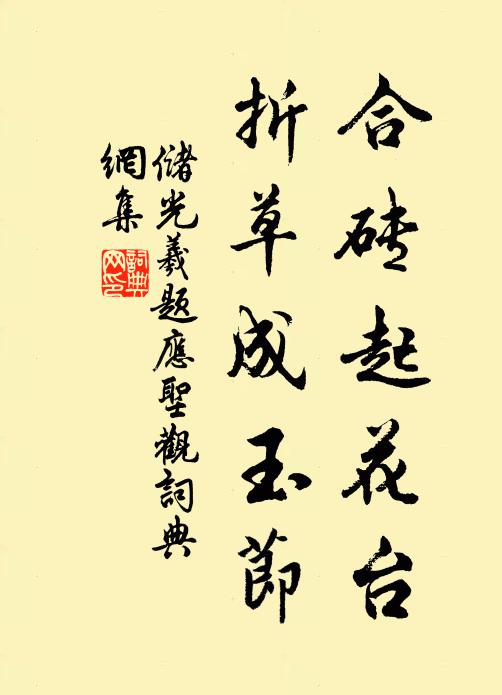 合砖起花台
折草成玉節
儲光羲題應聖觀詞典
網集
詞典
网印